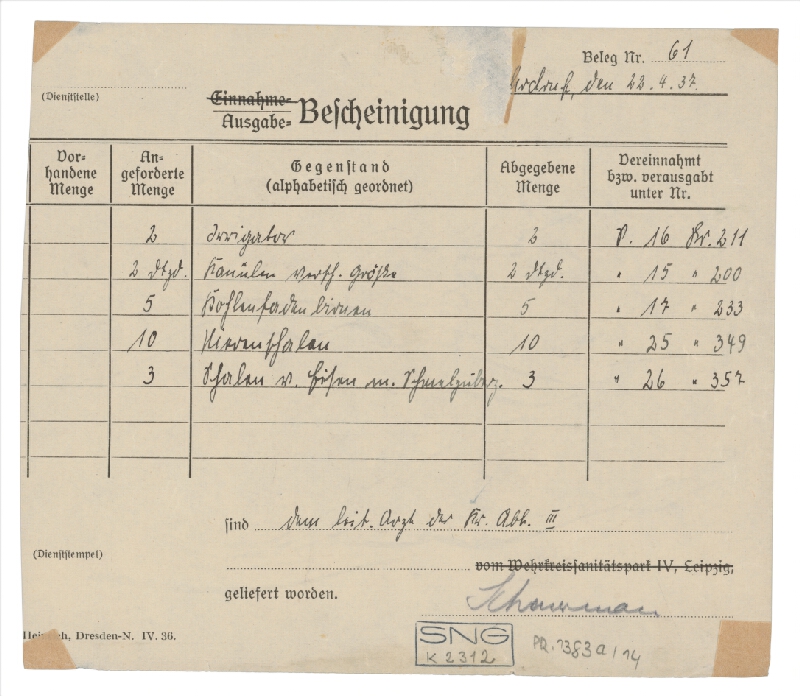 Beleg Nr. 61
den 22.4.37.
(Dienststelle)
Einnahme-
Ausgabe- Bescheinigung
Vor- handene Menge An- geforderte Menge Gegenstand (alphabetisch geordnet) Abgegebene Menge Vereinnahmt bzw. verausgabt unter Nr.
2 Irrigator 2 16 Nr. 211
2 Dtzd. Kanülen versch. Größe 2 Dtzd. " 15 " 200
5 Kohlenfadenbirnen 5 " 17 " 233
10 Nierenschalen 10 " 25 " 349
3 Schalen v. Eisen m. 3 " 26 " 357
sind dem leit. Arzt der Kr. Abt. III
(Dienststempel)
vom Wehrkreissanitätspark IV, Leipzig,
geliefert worden.
Dresden-N. IV. 36.
SNG
K 2312
PR. 1383a/14